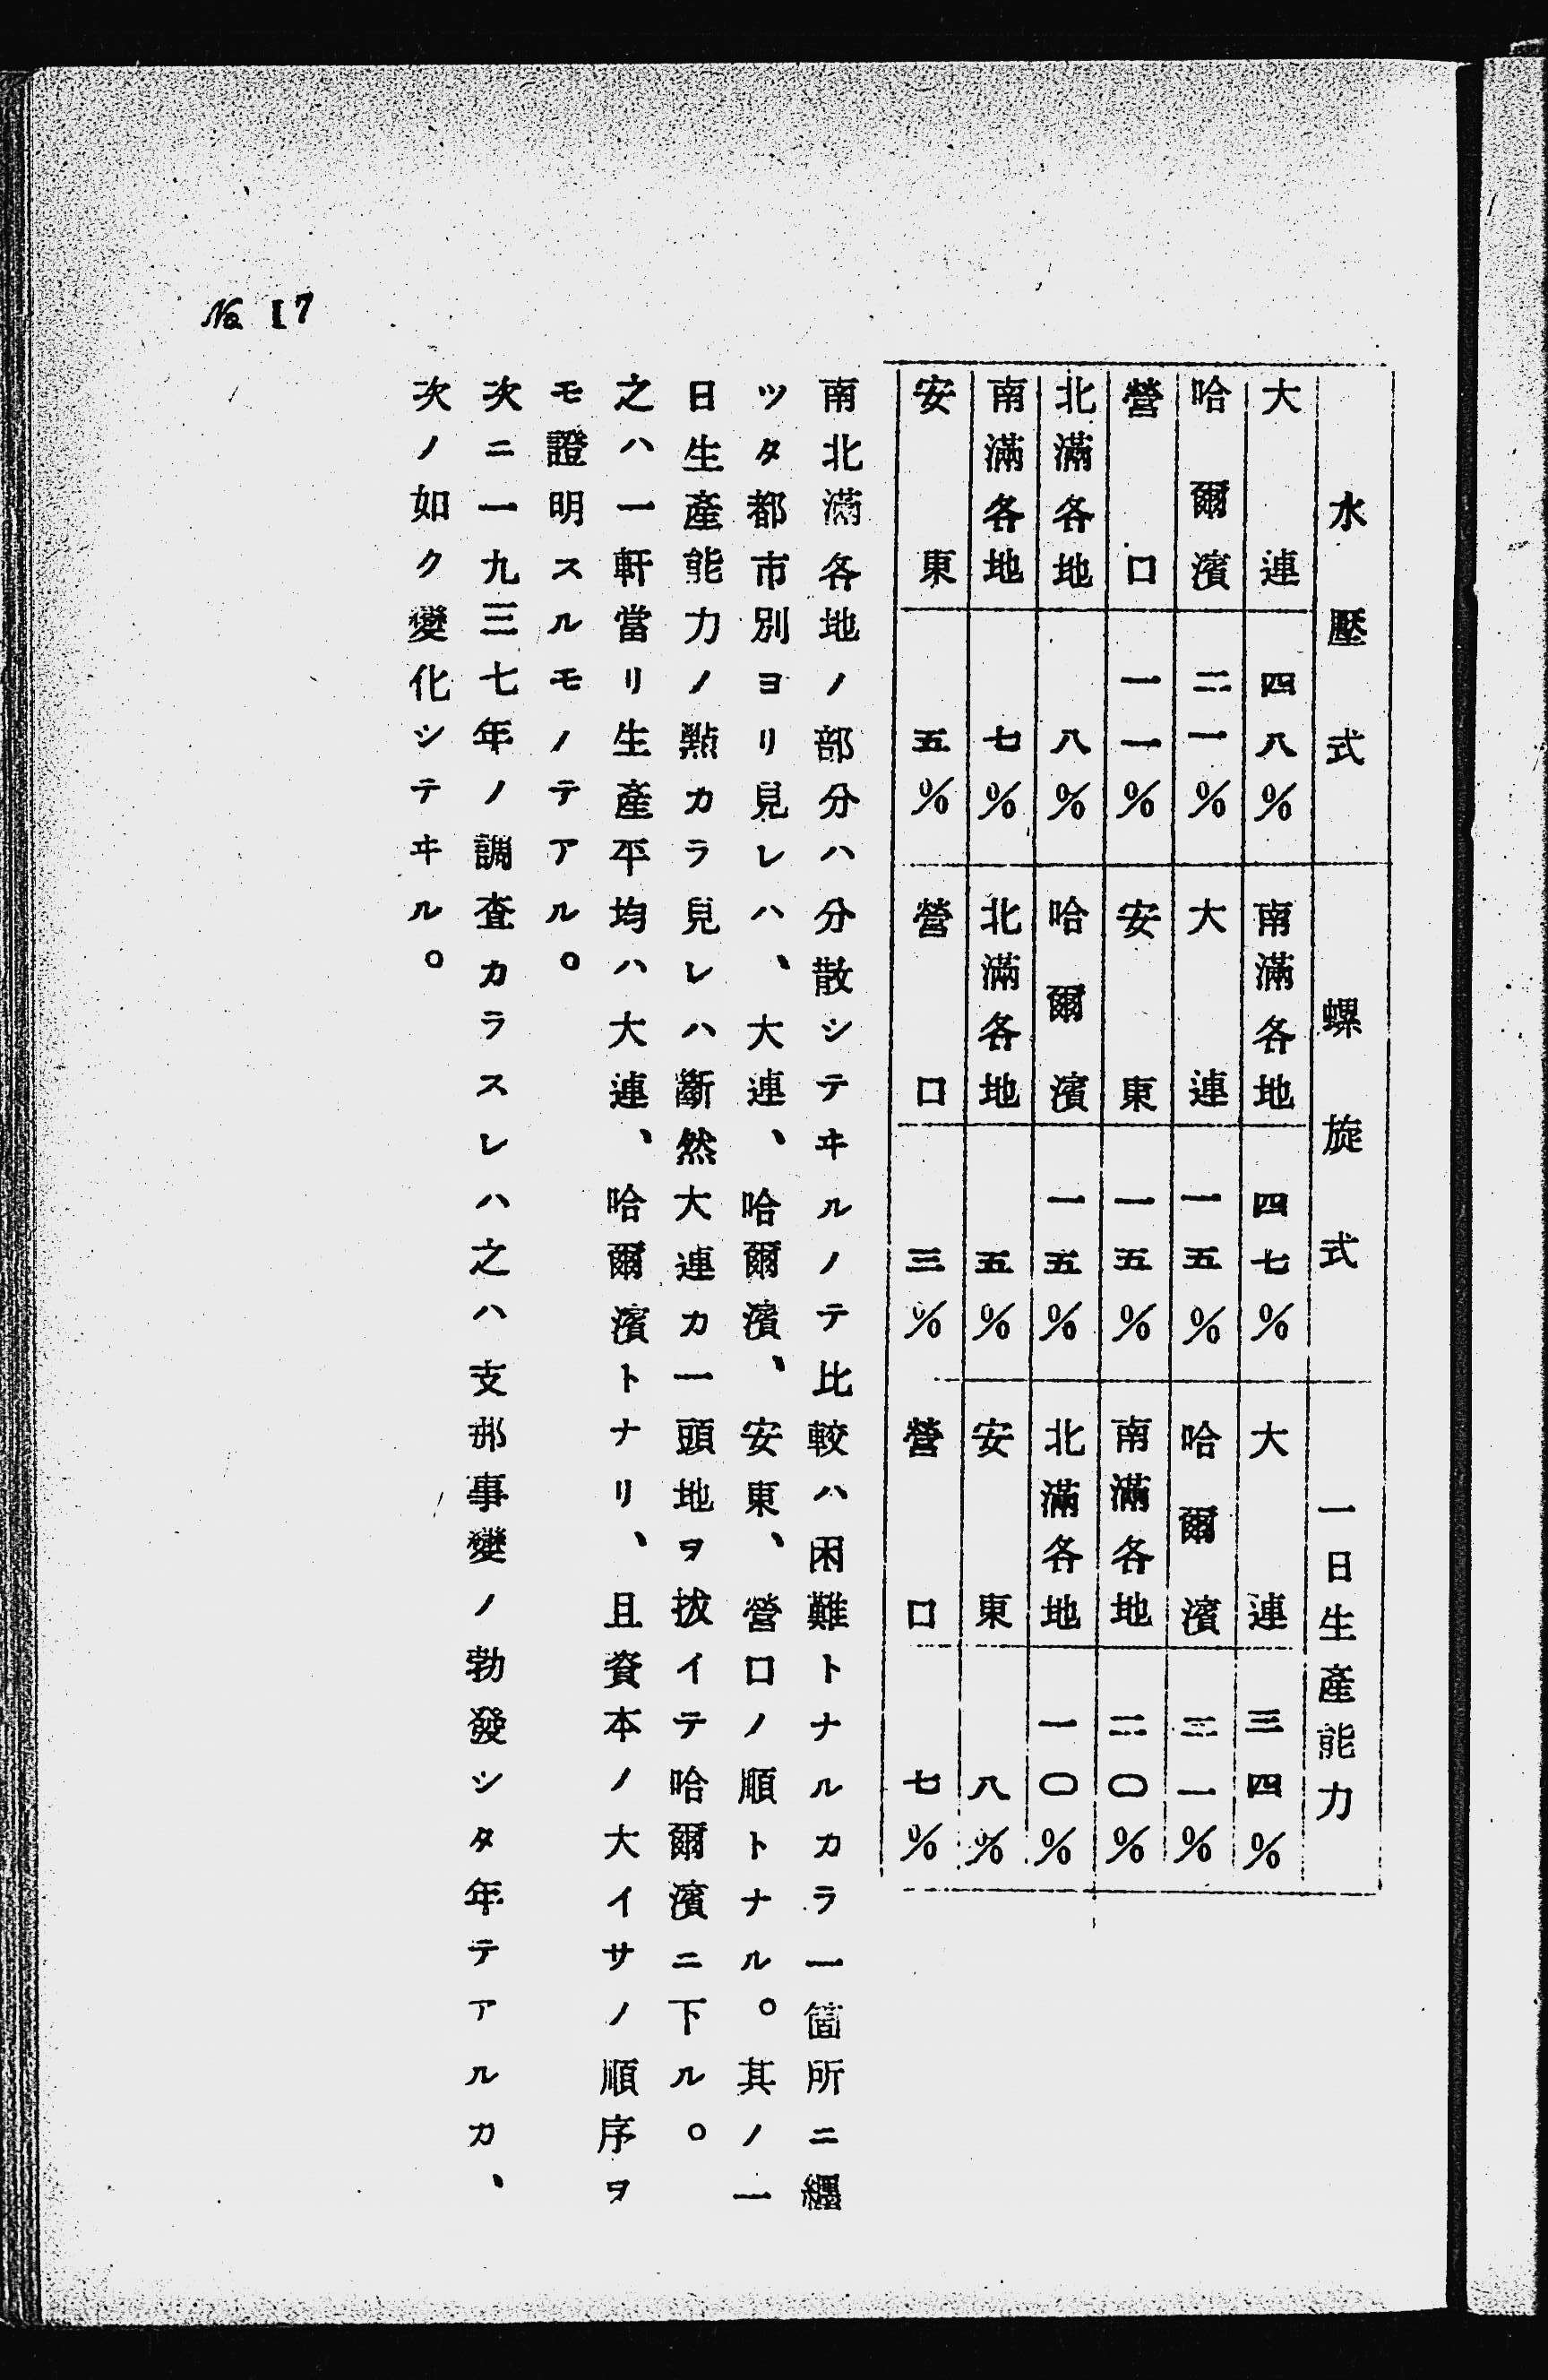 水壓式　螺旋式　一日生產能力
大連　四八％　南滿各地　四七％　大連　三四％
哈爾濱　二一％　大連　一五％　哈爾濱　二一％
營口　一一％　安東　一五％　南滿各地　二〇％
北滿各地　八％　哈爾濱　一五％　北滿各地　一〇％
南滿各地　七％　北滿各地　五％　安東　八％
安東　五％　營口　三％　營口　七％
南北滿各地ノ部分ハ分散シテヰルノテ比較ハ困難トナルカラ一箇所ニ纒
ツタ都市別ヨリ見レハ、大連、哈爾濱、安東、營口ノ順トナル。其ノ一
日生產能力ノ點カラ見レハ斷然大連カ一頭地ヲ拔イテ哈爾濱ニ下ル。
之ハ一軒當リ生產平均ハ大連、哈爾濱トナリ、且資本ノ大イサノ順序ヲ
モ證明スルモノテアル。
次ニ一九三七年ノ調查カラスレハ之ハ支那事變ノ勃發シタ年テアルカ、
次ノ如ク變化シテヰル。
No 17